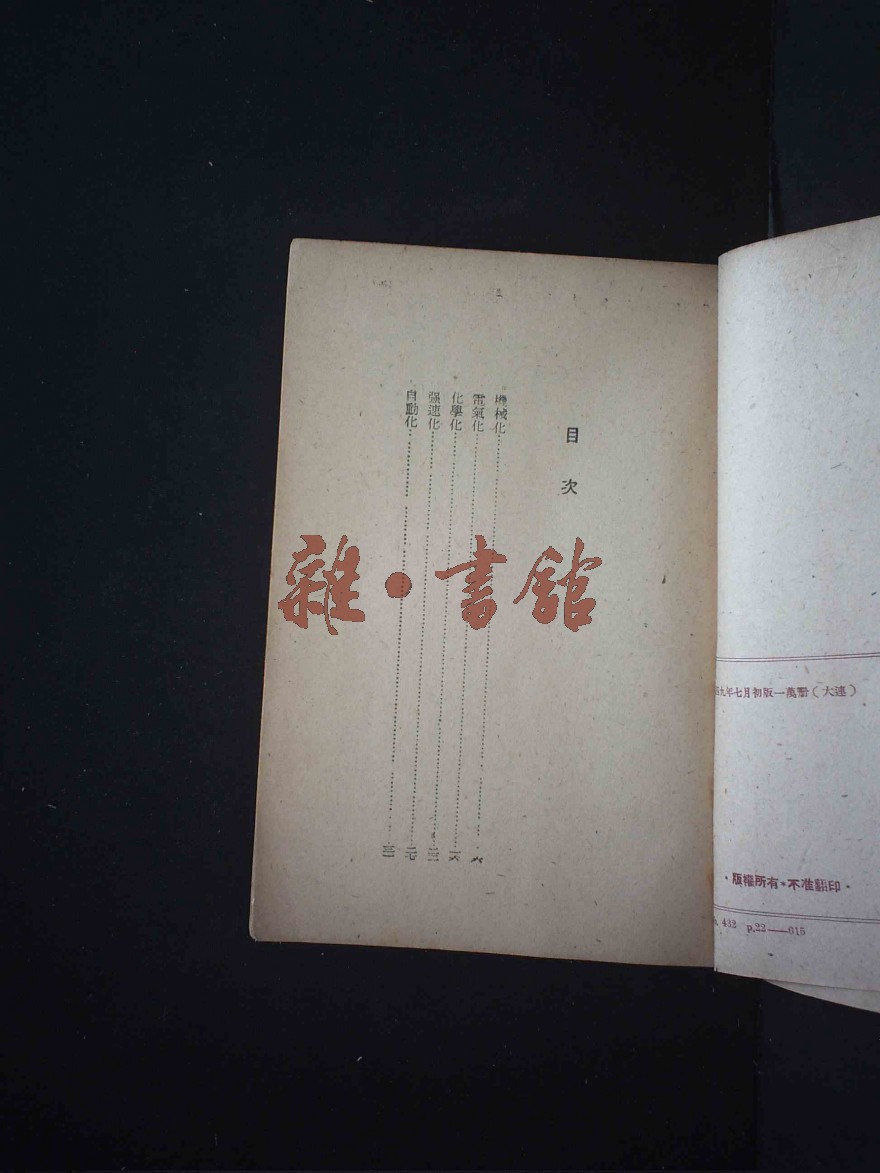 目次
機械化 六
電氣化
化學化
强速化
自動化
雜·書館
九年七月初版一萬册(大連)
·版權所有·不准翻印·
432 p.22——615